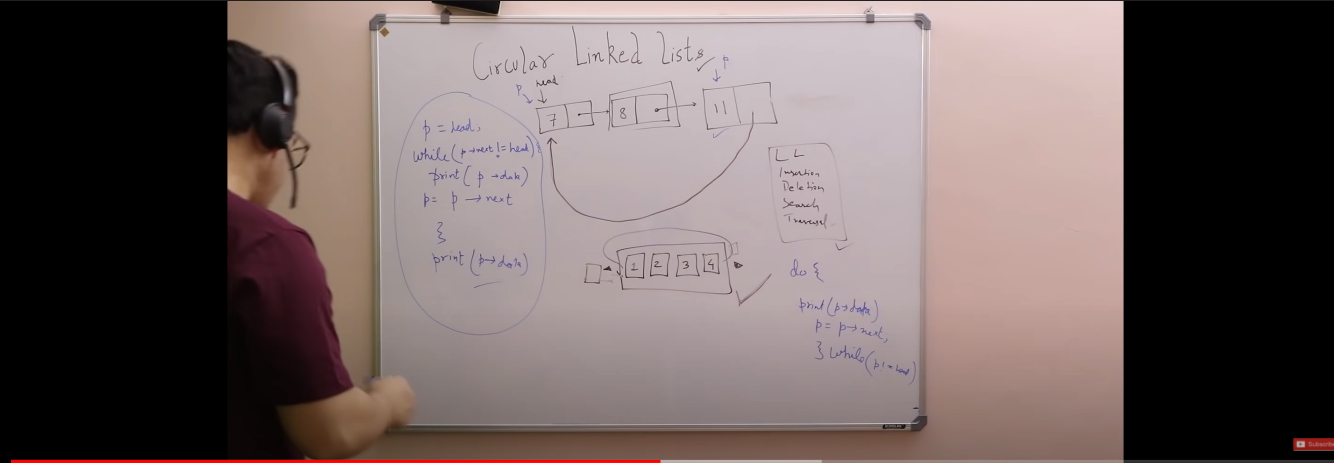 Circular Linked Lists
head
p
p
7
8
11
p = head,
while(p→next != head){
print( p →data)
p= p → next
}
print (p→data)
LL
Insertion
Deletion
Search
Traversal
1 2 3 4
do {
print(p→data)
p= p→next,
} while(p!=head)
Subscribe